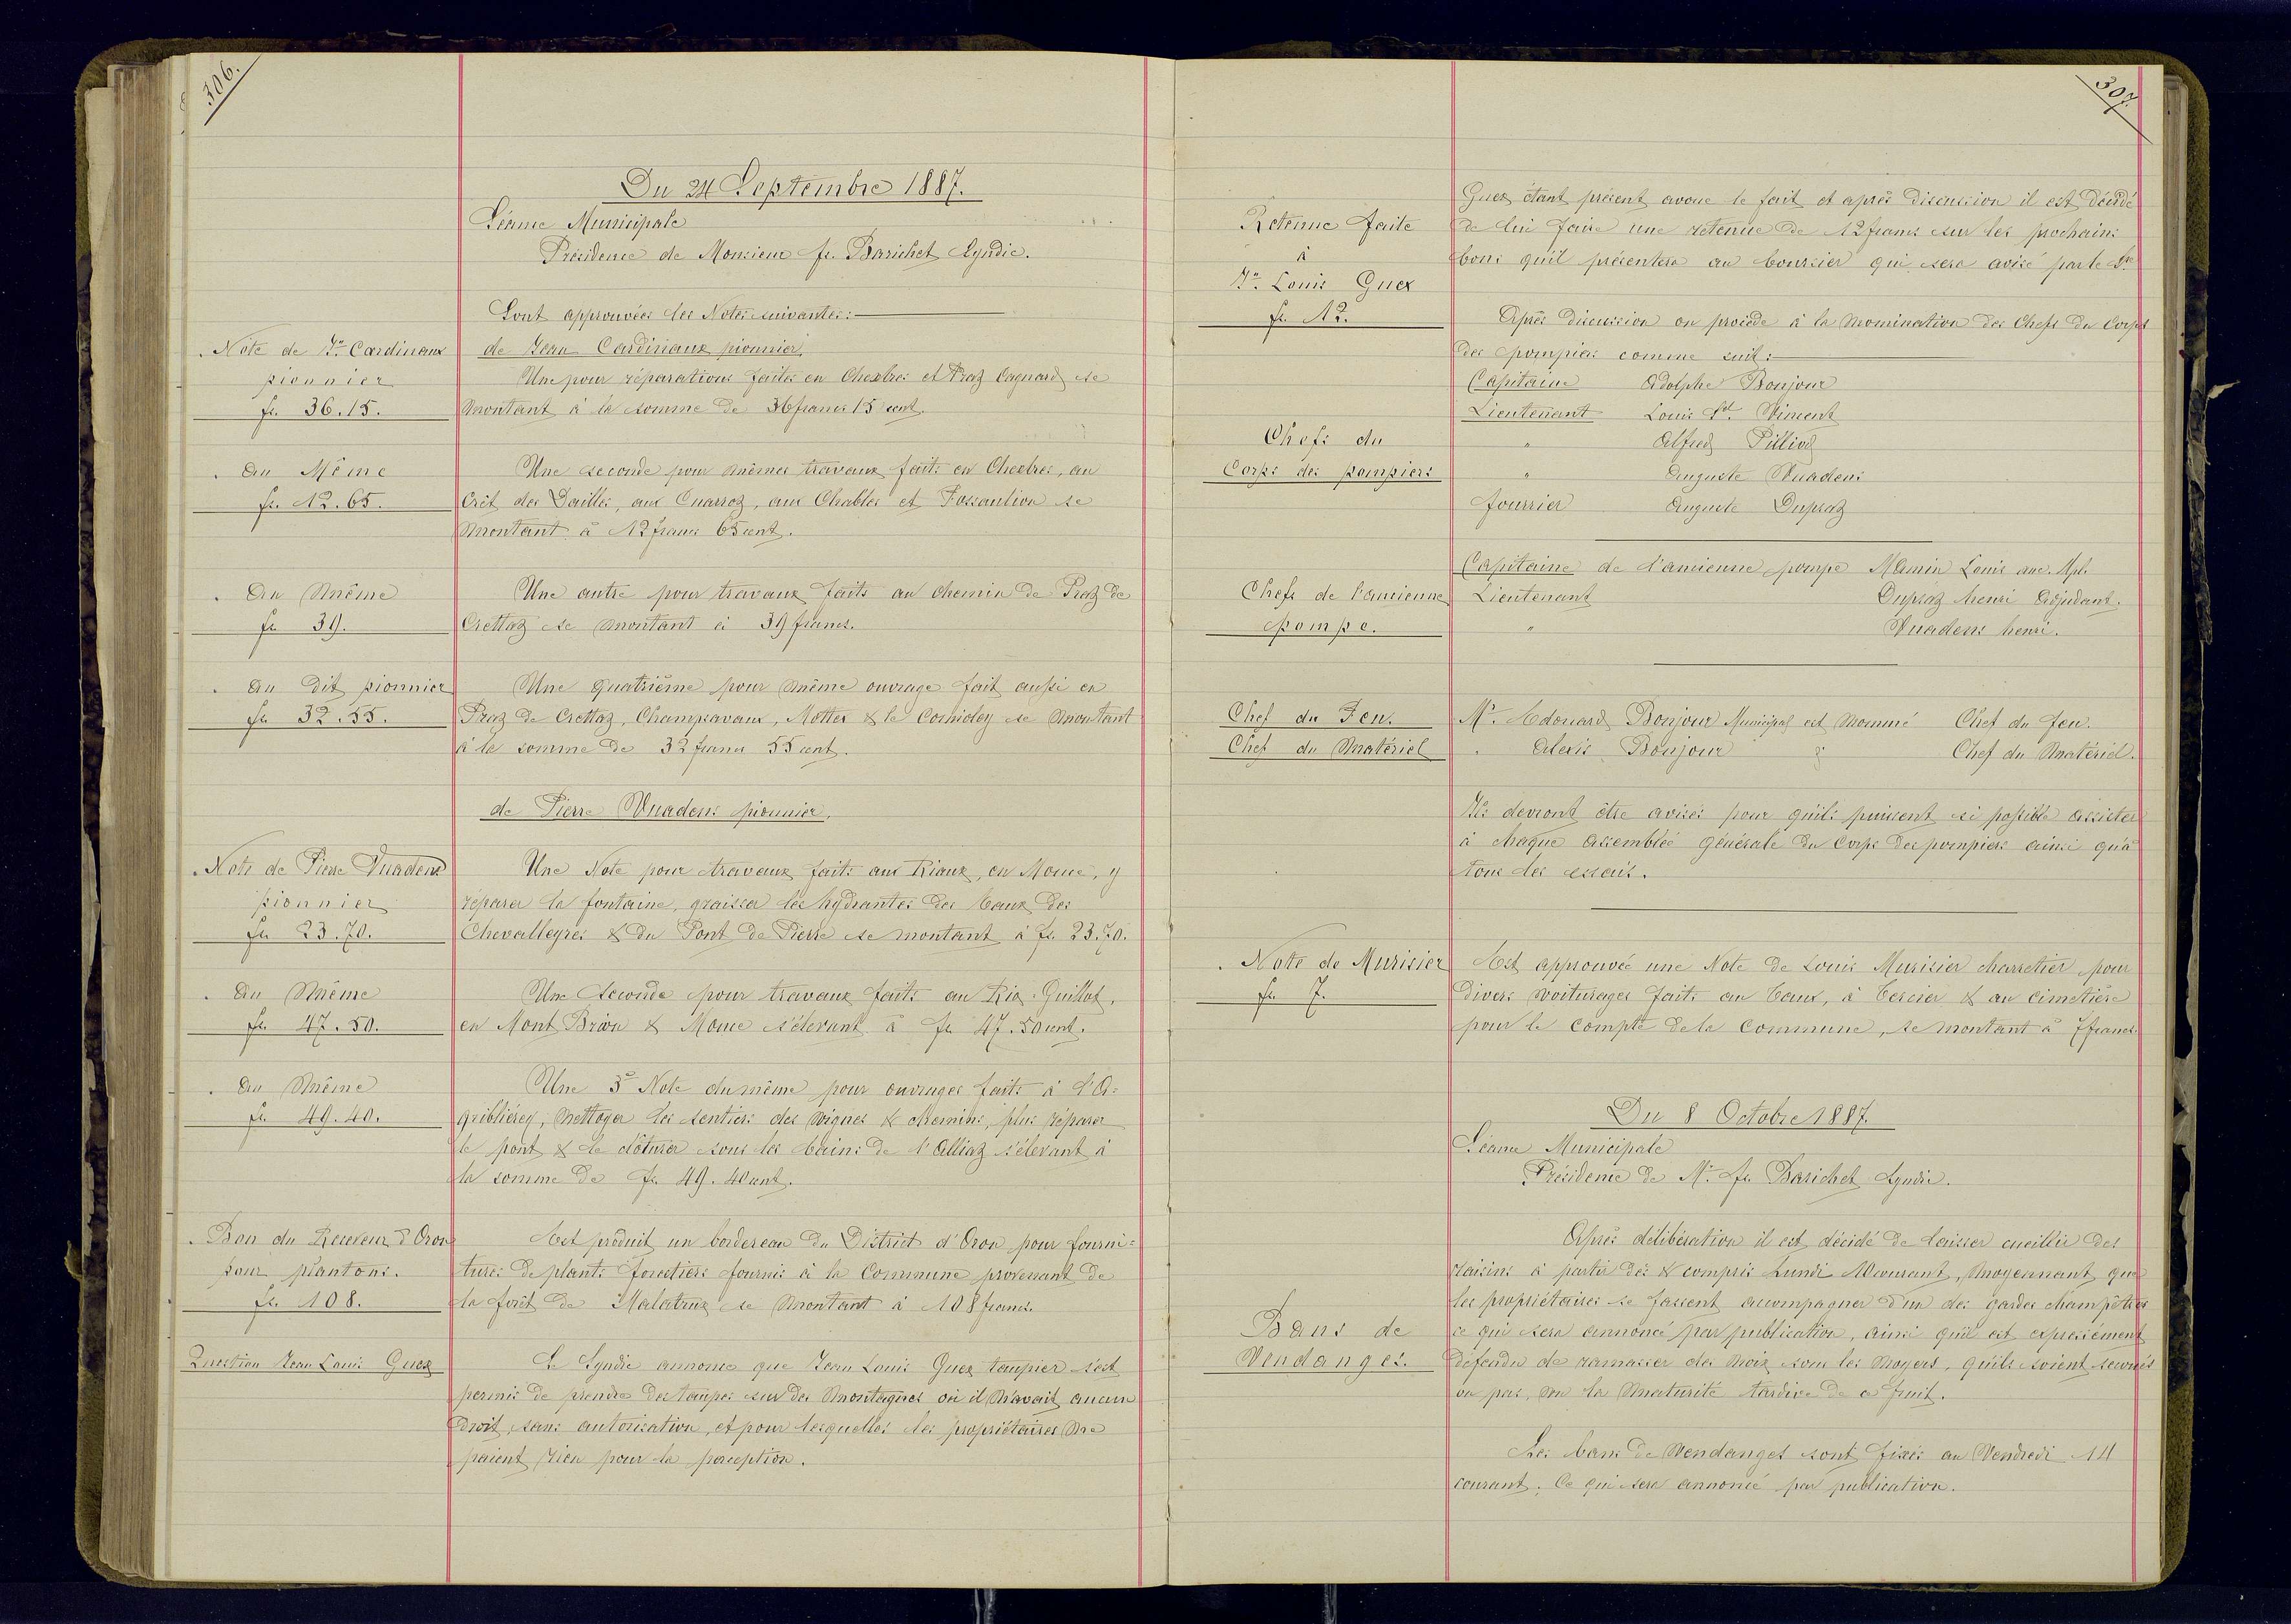 306.
Du 24 Septembre 1887.
Séance Municipale
Présidence de Monsieur fs. Barichet Syndic.
Sont approuvées les Notes suivantes:
Note de Jn Cardinaux
pionnier
fr. 36.15.
de Jean Cardinaux pionnier,
Une pour réparations faites en Chexbres et Praz Cagnard se
montant à la somme de 36 francs 15 cent.
Au Même
fr. 12.65.
Une seconde pour mêmes travaux faits en Chexbres, au
Crêt des Dailles, aux Cuarroz, aux Chables et se
montant à 12 francs 65 cent.
Au même
fr 39.
Une autre pour travaux faits au chemin de Praz de
Crettaz se montant à 39 francs.
Au dit pionnier
fr 32.55.
Une quatrième pour même ouvrage fait aussi en
Praz de Crettaz, Champsavaux, Mottex & le Cornioley se montant
à la somme de 32 francs 55 cent.
de Pierre Vuadens pionnier,
Note de Pierre Vuadens
pionnier
fr 23.70.
Une Note pour travaux faits aux Riaux, en Mouce, y
réparer la fontaine, graisser les hydrantes des Eaux des
Chevalleyres & du Pont de Pierre se montant à fr. 23.70.
Au même
fr. 47.50.
Une Seconde pour travaux faits au Rio-Guillot,
en Mont Brion & Mouce s'élevant à fr 47.50 cent.
Au même
fr. 49.40.
Une 3e Note du même pour ouvrages faits à l'A=
gribliérey, nettoyer les sentiers des vignes & chemins, plus réparer
le pont & le clôturer sous les bains de l'Alliaz s'élevant à
la somme de fr. 49.40 cent.
Bon du Receveur d'Oron
pour plantons.
fr. 108.
Est produit un bordereau du District d'Oron pour fourni=
tures de plants forestiers fournis à la Commune provenant de
la forêt de Malatruz se montant à 108 francs.
Question Jean Louis Guex
Le Syndic annonce que Jean Louis Guex taupier s'est
permis de prendre des taupes sur des Montagnes où il n'avait aucun
droit, sans autorisation, et pour lesquelles les propriétaires ne
paient rien pour la perception.
307.
Retenue faite
à
Jn. Louis Guex
fr. 12.
Guex étant présent avoue le fait et après discussion il est décidé
de lui faire une retenue de 12 francs sur les prochains
bons qu'il présentera au boursier qui sera avisé par le Sre
Après discussion on procède à la nomination des Chefs du Corps
des pompiers comme suit:
Chefs du
Corps des pompiers
Capitaine Adolphe Bonjour
Lieutenant Louis Sd. Viment
" Alfred Pilliod
" Auguste Vuadens
fourrier Auguste Dupraz
Chefs de l'ancienne
pompe.
Capitaine de l'ancienne pompe Mamin Louis anc. Mpl.
Lieutenant Dupraz henri Adjudant.
" Vuadens henri.
Chef du Feu.
Chef du Matériel
Mr. Edouard Bonjour Municipal est nommé Chef du feu.
" Alexis Bonjour " Chef du Matériel.
Ils devront être avisés pour qu'ils puissent si possible assister
à chaque assemblée générale du Corps des pompiers ainsi qu'à
tous les essais.
Note de Murisier
fr. 7.
Est approuvée une Note de Louis Murisier charretier pour
divers voiturages faits au Eaux, à Cercier & au cimetière
pour le compte de la Commune, se montant à 7 francs.
Du 8 Octobre 1887.
Séance Municipale
Présidence de Mr. fs Barichet Syndic.
Bans de
Vendanges.
Après délibération il est décidé de laisser cueillir des
raisins à partir dès & compris Lundi 10 courant, moyennant que
les propriétaires se fassent accompagner d'un des gardes champêtres
ce qui sera annoncé par publication, ainsi qu'il est expressément
défendu de ramasser des noix sous les noyers, qu'ils soient secoués
ou pas, vu la maturité tardive de ce fruit.
Les bans de Vendanges sont fixés au Vendredi 14
courant. Ce qui sera annoncé par publication.